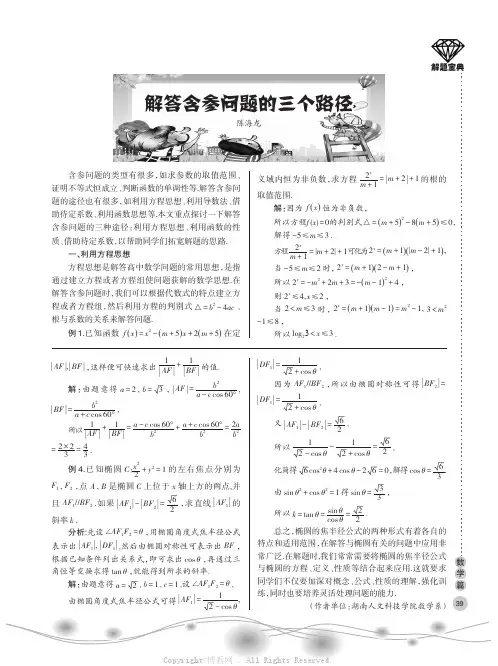 解题宝典
解答含参问题的三个路径
陈海龙
含参问题的类型有很多,如求参数的取值范围,
证明不等式恒成立,判断函数的单调性等.解答含参问
题的途径也有很多,如利用方程思想、利用导数法、借
助待定系数、利用函数思想等.本文重点探讨一下解答
含参问题的三种途径:利用方程思想、利用函数的性
质、借助待定系数,以帮助同学们拓宽解题的思路.
一、利用方程思想
方程思想是解答高中数学问题的常用思想,是指
通过建立方程或者方程组使问题获解的数学思想.在
解答含参问题时,我们可以根据代数式的特点建立方
程或者方程组,然后利用方程的判别式 △=b²-4ac 、
根与系数的关系来解答问题.
例1.已知函数 f(x)=x²-(m+5)x+2(m+5) 在定
义域内恒为非负数,求方程 2ˣ/(m+1)=|m+2|+1 的根的
取值范围.
解:因为 f(x) 恒为非负数,
所以方程f(x)=0的判别式△=(m+5)²-8(m+5)≤0,
解得 -5≤m≤3.
方程 2ˣ/(m+1)=|m+2|+1可化为2ˣ=(m+1)(|m-2|+1),
当 -5≤m≤2 时, 2ˣ=(m+1)(2-m+1),
所以 2ˣ=-m²+2m+3=-(m-1)²+4,
则 2ˣ≤4,x≤2,
当 2<m≤3 时, 2ˣ=(m+1)(m-1)=m²-1, 3<m²
-1≤8,
所以 log₂3<x≤3.
|AF|,|BF|,这样便可快速求出 1/|AF|+1/|BF| 的值.
解:由题意得 a=2, b=√3 、|AF|=b²/(a-c cos 60°),
|BF|=b²/(a+c cos 60°),
所以 1/|AF|+1/|BF|=(a-c cos 60°)/b²+(a+c cos 60°)/b²=2a/b²
=2×2/3=4/3.
例4.已知椭圆 C:x²/2+y²=1 的左右焦点分别为
F₁,F₂ ,点 A,B 是椭圆 C 上位于 x 轴上方的两点,并
且 AF₁//BF₂.如果 |AF₁|-|BF₂|=√6/2 ,求直线 |AF₁| 的
斜率k.
分析:先设 ∠AF₁F₂=θ,用椭圆角度式焦半径公式
表示出 |AF₁|,|DF₁|,然后由椭圆对称性可表示出 BF ,
根据已知条件列出关系式,即可求出 cosθ ,再通过三
角恒等变换求得 tanθ,就能得到所求的斜率.
解:由题意得 a=√2, b=1, c=1,设 ∠AF₁F₂=θ,
由椭圆角度式焦半径公式可得 |AF₁|=1/(√2-cosθ),
|DF₁|=1/(√2+cosθ),
因为 AF₁//BF₂ ,所以由椭圆对称性可得 |BF₂|=
|DF₁|=1/(√2+cosθ),
又|AF₁|-|BF₂|=√6/2,
所以 1/(√2-cosθ)-1/(√2+cosθ)=√6/2,
化简得 √6cos²θ+4cosθ-2√6=0,解得 cosθ=√6/3
由 sin²θ+cos²θ=1 得 sinθ=√3/3,
所以 k=tanθ=sinθ/cosθ=√2/2.
总之,椭圆的焦半径公式的两种形式有着各自的
特点和适用范围,在解答与椭圆有关的问题中应用非
常广泛.在解题时,我们常常需要将椭圆的焦半径公式
与椭圆的方程、定义、性质等结合起来应用.这就要求
同学们不仅要加深对概念、公式、性质的理解,强化训
练,同时也要培养灵活处理问题的能力.
(作者单位:湖南人文科技学院数学系)
数学篇
39
Copyright©博看网 . All Rights Reserved.